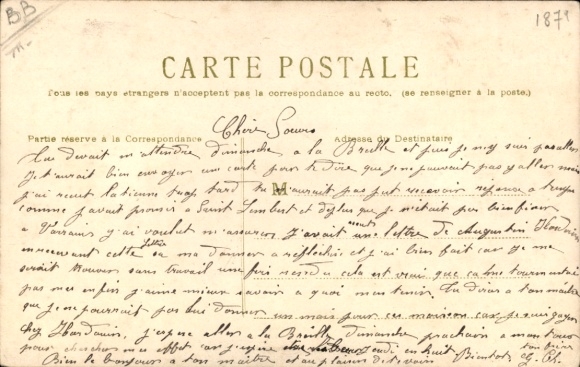 BB
187
CARTE POSTALE
Tous les pays étrangers n'acceptent pas la correspondance au recto. (se renseigner à la poste.)
Partie réservée à la Correspondance
Adresse du Destinataire
Chère Soeur
Tu devait m'attendre dimanche a la Breille et puis je n'y suis pas aller
Je t'aurait bien envoyer une carte pour te dire que je ne pouvait pas y aller mais
j'ai recut la tienne trop tard tu n'aurait pas put recevoir réponse a temps
comme j'avait promis a Saint Lambert et de plus que je n'était pas bien fixer
a Varrains j'ai voulut m'assurer j'avait une lettre de Augustin
en recevant cette lettre sa ma donner a réfléchir et j'ai bien fait car je me
serait trouver sans travail une fois rendu cela est vrai que ca ne tourmentait
pas mes enfin j'aime mieux savoir a quoi men tenir. Tu diras a ton maitre
que je ne pourrait pas lui donner un mois pour ces moisson car je suis gager
chez Hardouin, j'espère aller a la Breille dimanche prochain a mon tour
pour chercher mes effet jeudi en huit Bientot ton frère
Bien le bonjour a ton maitre et au plaisir de te voir